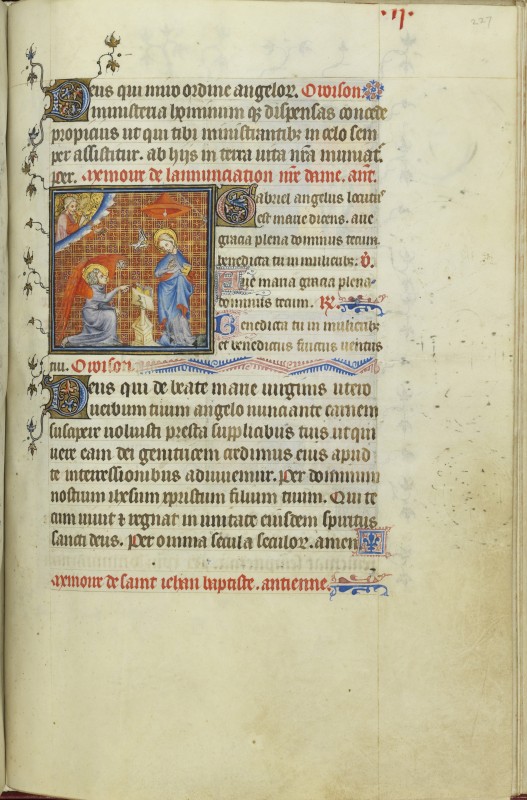 .17.
227
Deus qui miro ordine angelor. Orison.
ministeria hominum qz dispensas concede
propicius ut qui tibi ministrantibz in celo sem
per assistitur. ab hijs in terra uita nra muniat.
Per. Memoire de lannunciation nre dame. ant.
Gabriel angelus locutus
est marie dicens. aue
gracia plena dominus tecum.
benedicta tu in mulieribz. V.
Aue maria gracia plena
dominus tecum. R.
Benedicta tu in mulieribz
et benedictus fructus uentris
tui. Orison.
Deus qui de beate marie uirginis utero
uerbum tuum angelo nunciante carnem
suscipere uoluisti presta supplicibus tuis ut qui
uere eam dei genitricem credimus eius apud
te intercessionibus adiuuemur. Per dominum
nostrum ihesum xpristum filium tuum. Qui te
cum uiuit & regnat in unitate eiusdem spiritus
sancti deus. Per omnia secula seculor. amen
Memoire de saint iehan baptiste. antienne.